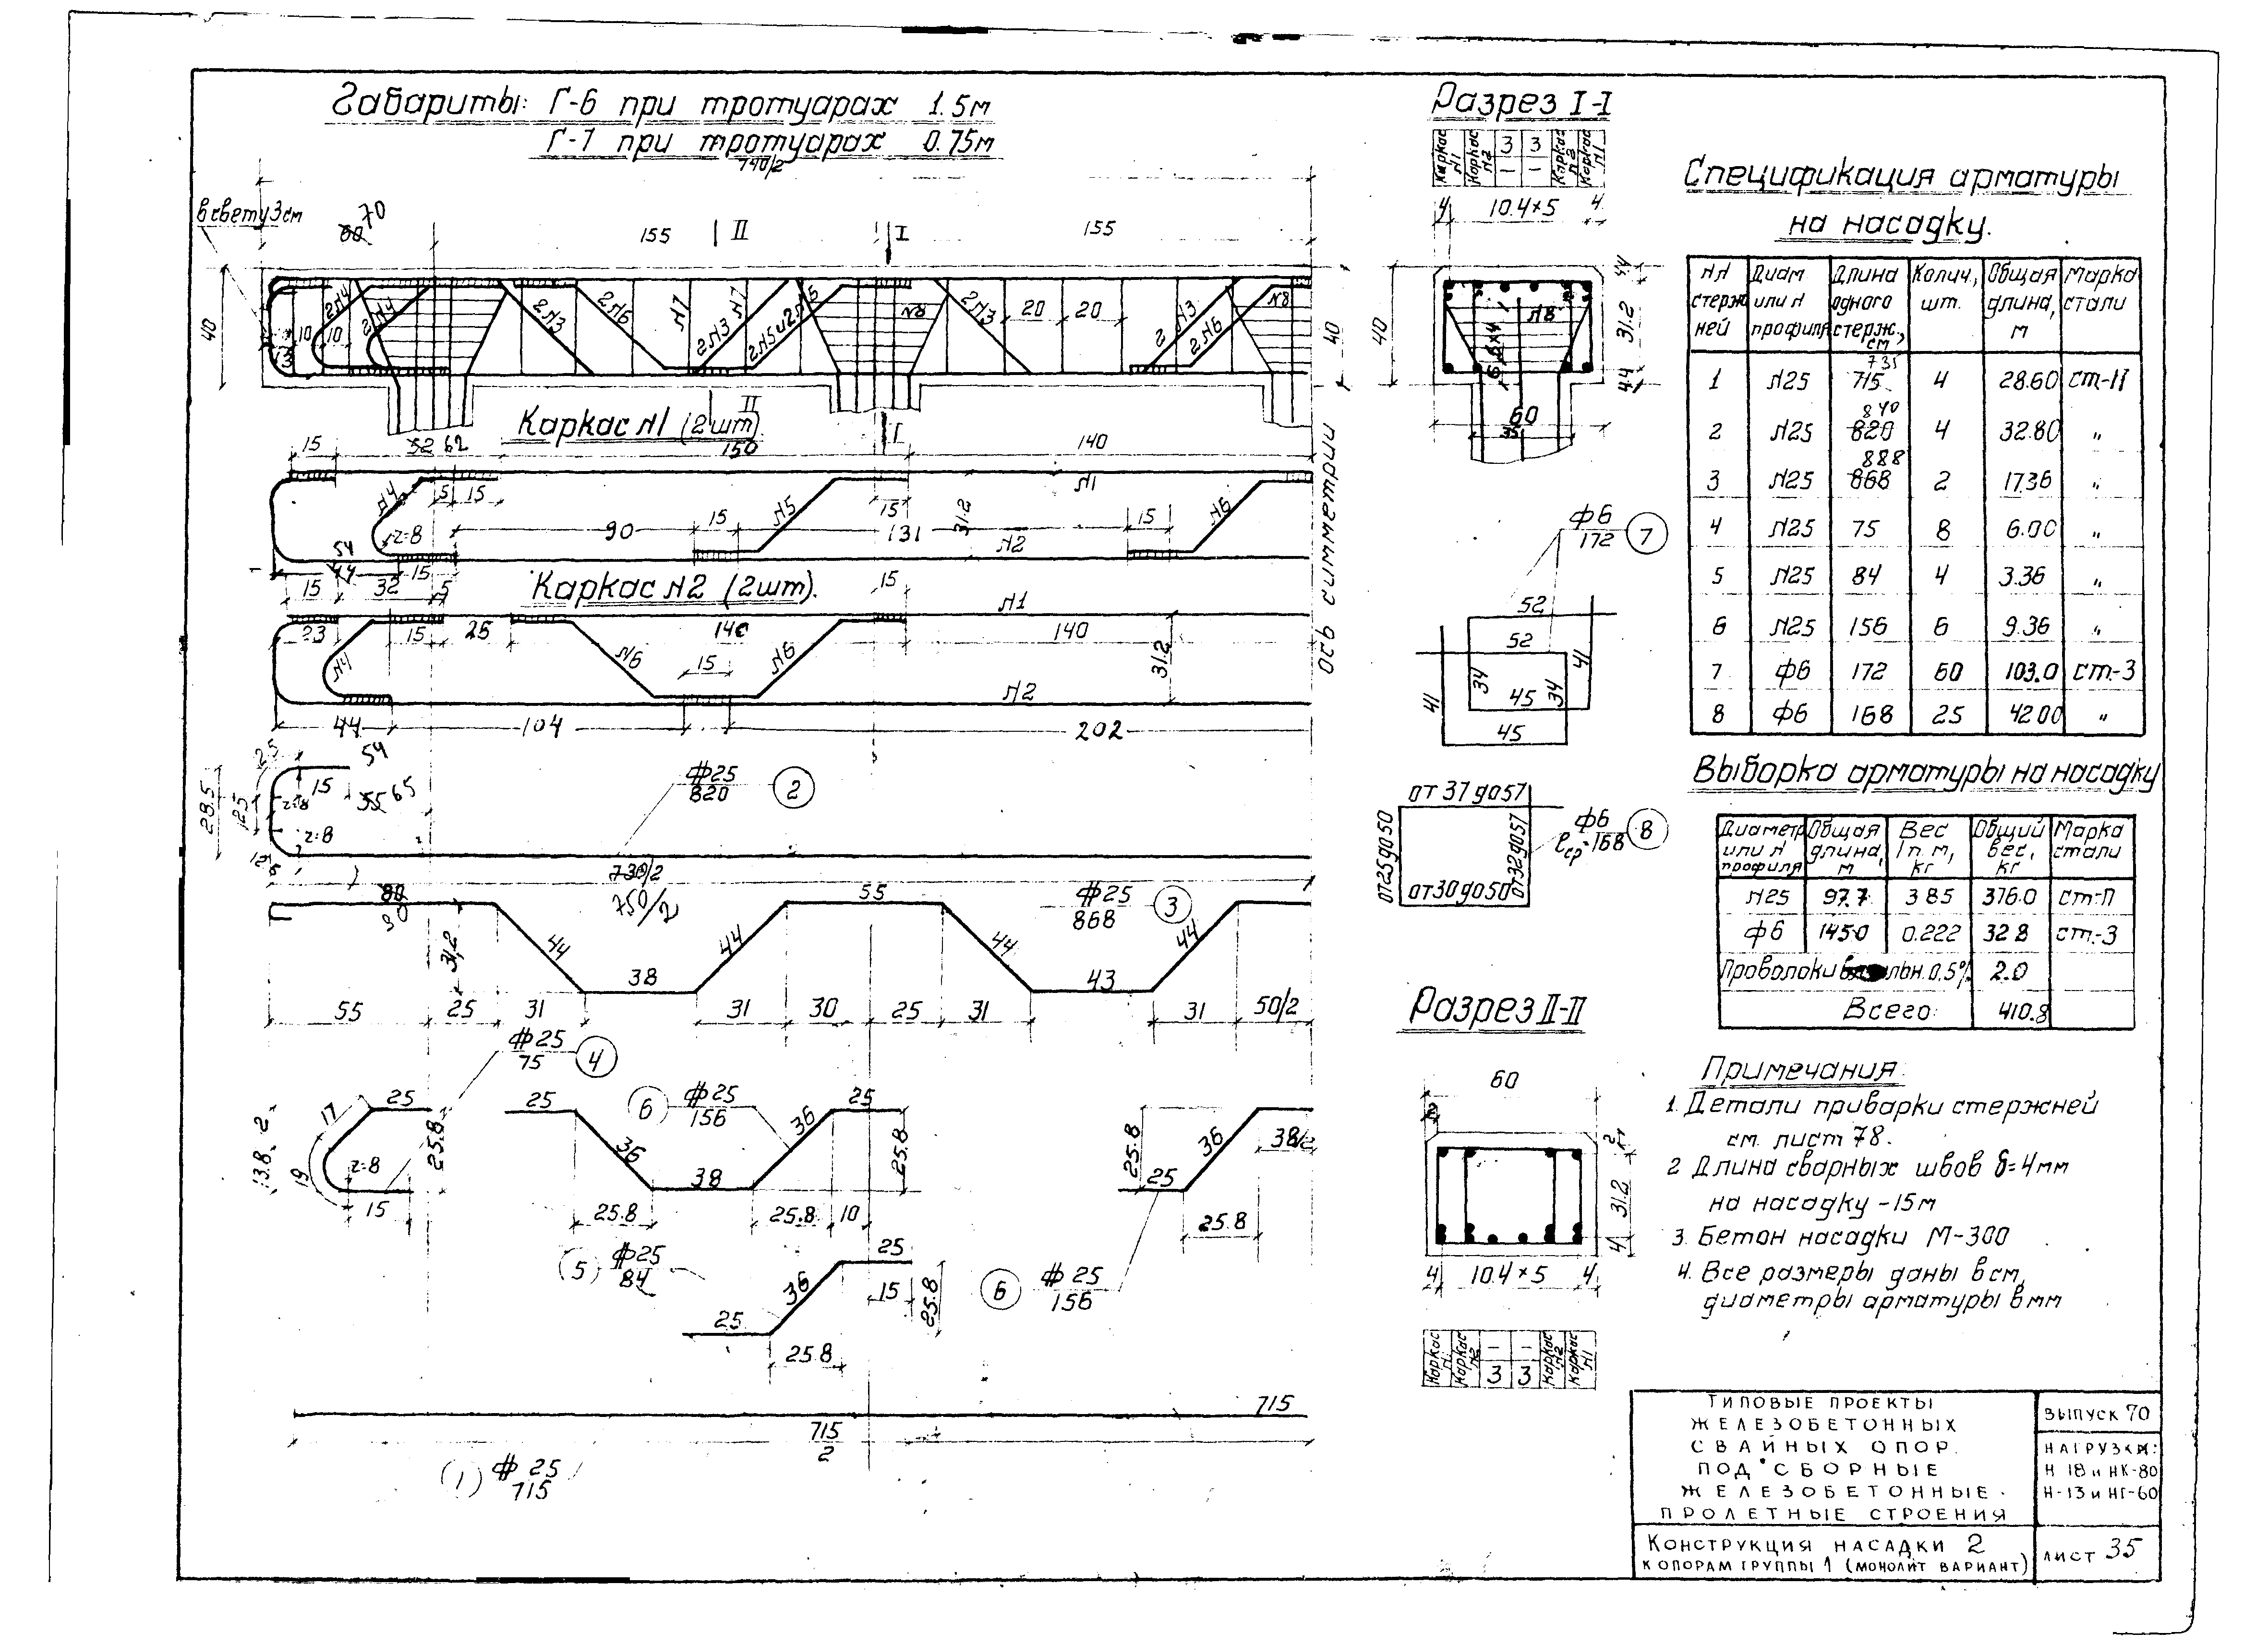 Габариты: Г-6 при тротуарах 1.5м
Г-7 при тротуарах 0.75м
740/2
в свету 3см
60 70
155
II
I
155
40
10
10
13
2№4
2№4
2№3
2№6
№7
2№3
№7
2№5и2№6
№8
2№3
20
20
2№3
2№6
№8
40
II
I
Каркас №1 (2шт).
15
52 62
150
140
№4
5
15
90
15
№5
15
131
31.2
№1
№2
15
№6
r=8
54
44
15
15
32
5
Каркас №2 (2шт).
15
№1
23
15
25
140
140
№4
№6
15
№6
31.2
№2
44
104
202
54
ось симметрии
25
28.5
12.5
15
r=8
r=8
55 65
12.5
#25
820
2
730/2
750/2
80
90
55
#25
868
3
31,2
44
44
44
44
38
43
55
25
31
31
30
25
31
31
50/2
#25
75
4
17
25
13.8
2
19
r=8
25.8
15
25
6
#25
156
36
36
25
38
25.8
25.8
25.8
10
25.8
25
36
38/2
25.8
5
#25
84
25
36
25
15
25.8
25.8
6
#25
156
715
715
2
1
#25
715
Разрез I-I
Каркас №1
Каркас №2
3
3
Каркас №2
Каркас №1
–
–
4
10.4×5
4
40
4.4
31.2
4.4
№8
6.6×4
60
35
ф6
172
7
52
52
41
34
45
34
41
45
от 37 до 57
от 25 до 50
от 32 до 57
от 30 до 50
ф6
ℓср=168
8
Разрез II-II
60
2
2
31.2
4
4
10.4×5
4
Каркас №1
Каркас №2
–
–
Каркас №2
Каркас №1
3
3
Спецификация арматуры
на насадку.
№№ стержней
Диам или № профиля
Длина одного стерж., см
Колич., шт.
Общая длина, м
Марка стали
1 №25 715 735 4 28.60 ст-П
2 №25 820 840 4 32.80 "
3 №25 868 888 2 17.36 "
4 №25 75 8 6.00 "
5 №25 84 4 3.36 "
6 №25 156 6 9.36 "
7 ф6 172 60 103.0 ст-3
8 ф6 168 25 42.00 "
Выборка арматуры на насадку
Диаметр или № профиля
Общая длина, м
Вес 1п.м, кг
Общий вес, кг
Марка стали
№25 97.7 3.85 376.0 ст-П
ф6 145.0 0.222 32.8 ст-3
Проволоки вязальн. 0.5% 2.0
Всего: 410.8
Примечания:
1. Детали приварки стержней
см. лист 78.
2 Длина сварных швов δ=4мм
на насадку -15м
3. Бетон насадки М-300
4. Все размеры даны в см,
диаметры арматуры в мм
ТИПОВЫЕ ПРОЕКТЫ
ЖЕЛЕЗОБЕТОННЫХ
СВАЙНЫХ ОПОР.
ПОД СБОРНЫЕ
ЖЕЛЕЗОБЕТОННЫЕ
ПРОЛЕТНЫЕ СТРОЕНИЯ
ВЫПУСК 70
НАГРУЗКИ:
Н 18 и НК-80
Н-13 и НГ-60
КОНСТРУКЦИЯ НАСАДКИ 2
К ОПОРАМ ГРУППЫ 1 (МОНОЛИТ ВАРИАНТ)
ЛИСТ 35